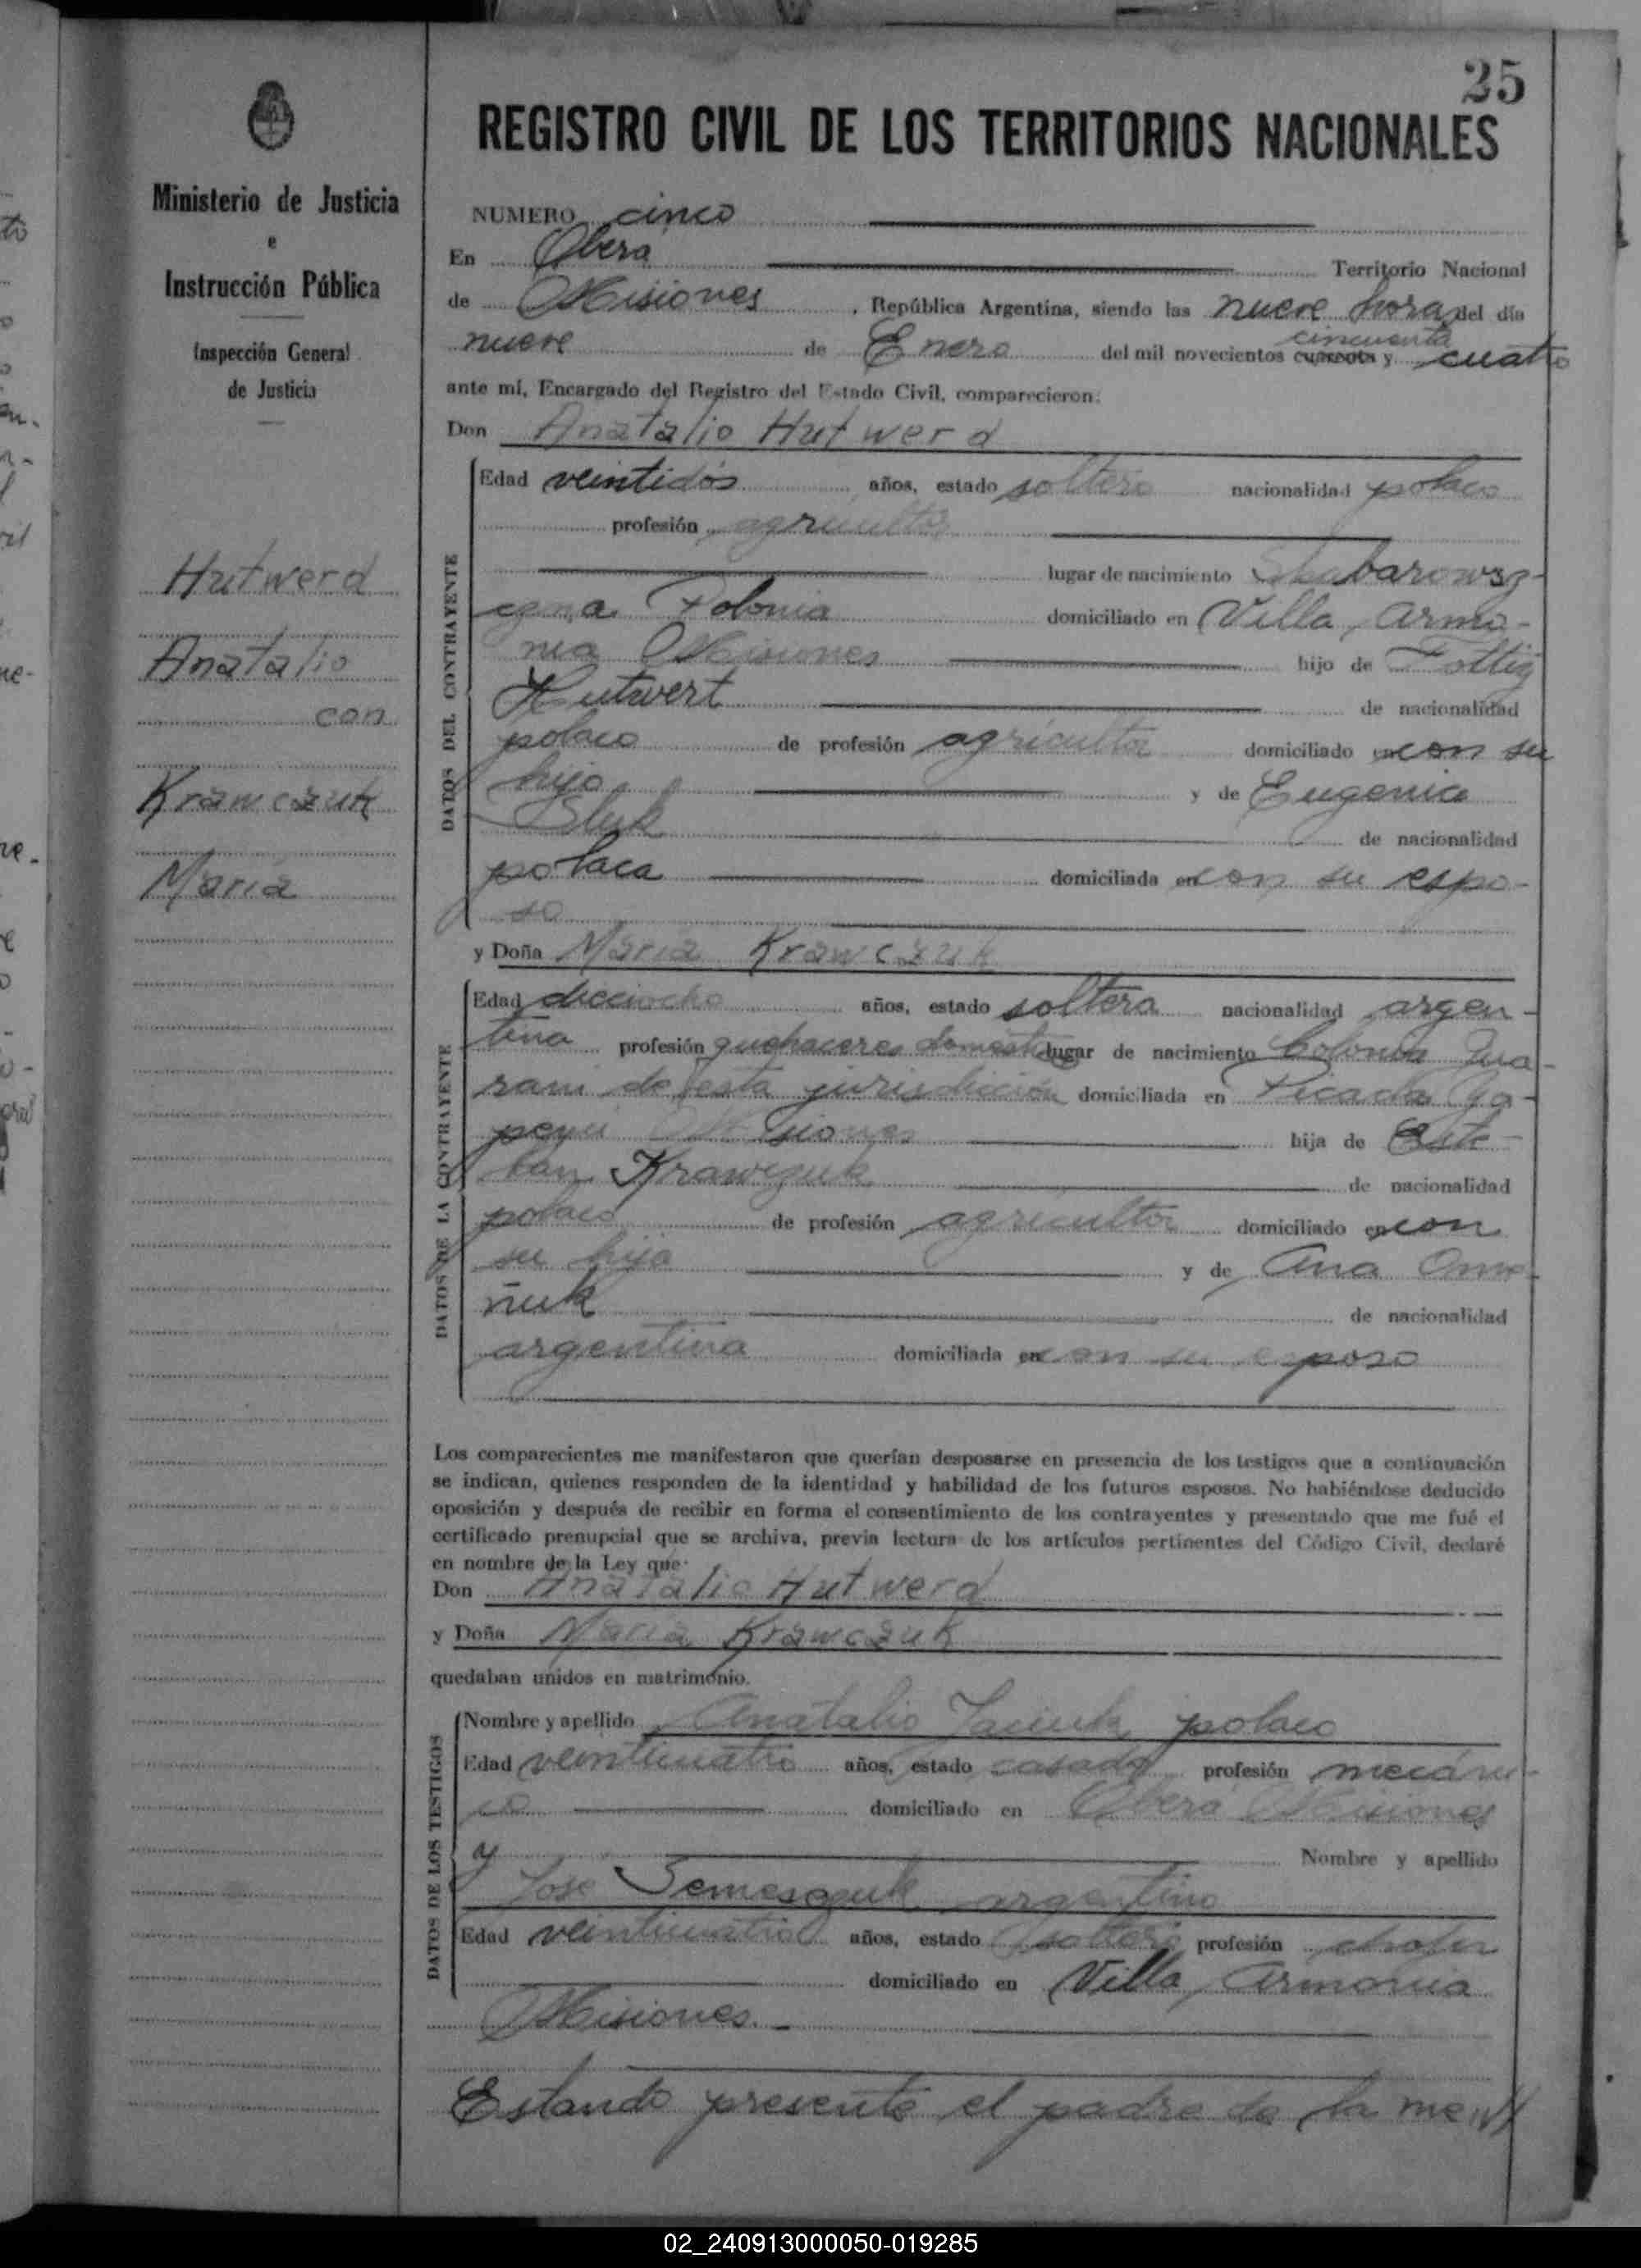 25
REGISTRO CIVIL DE LOS TERRITORIOS NACIONALES
Ministerio de Justicia
e
Instrucción Pública
Inspección General
de Justicia
Hutwerd
Anatalio
con
Krawczuk
Maria
NUMERO cinco
En Oberá Territorio Nacional
de Misiones, República Argentina, siendo las nueve horas del día
cincuenta
nueve de Enero del mil novecientos cuarenta y cuatro
ante mí, Encargado del Registro del Estado Civil, comparecieron:
Don Anatalio Hutwerd
DATOS DEL CONTRAYENTE
Edad veintidós años, estado soltero nacionalidad polaco
profesión agricultor
lugar de nacimiento
Polonia domiciliado en Villa Armo-
nia Misiones hijo de
Hutwert de nacionalidad
polaco de profesión agricultor domiciliado en con su
hijo y de Eugenia
de nacionalidad
polaca domiciliada en con su espo-
so
y Doña Maria Krawczuk
DATOS DE LA CONTRAYENTE
Edad dieciocho años, estado soltera nacionalidad argen-
tina profesión quehaceres domésticos lugar de nacimiento Colonia Gua-
rani de esta jurisdicción domiciliada en Picada Ya-
peyú Misiones hija de Este-
ban Krawczuk de nacionalidad
polaco de profesión agricultor domiciliado en con
su hija y de Ana
ñuk de nacionalidad
argentina domiciliada en con su esposo
Los comparecientes me manifestaron que querían desposarse en presencia de los testigos que a continuación
se indican, quienes responden de la identidad y habilidad de los futuros esposos. No habiéndose deducido
oposición y después de recibir en forma el consentimiento de los contrayentes y presentado que me fué el
certificado prenupcial que se archiva, previa lectura de los artículos pertinentes del Código Civil, declaré
en nombre de la Ley que
Don Anatalio Hutwerd
y Doña Maria Krawczuk
quedaban unidos en matrimonio.
DATOS DE LOS TESTIGOS
Nombre y apellido Anatalio polaco
Edad veinticuatro años, estado casado profesión mecáni-
co domiciliado en Oberá Misiones
y Nombre y apellido
José argentino
Edad veinticuatro años, estado soltero profesión chofer
domiciliado en Villa Armonia
Misiones.
Estando presente el padre de la
02_240913000050-019285